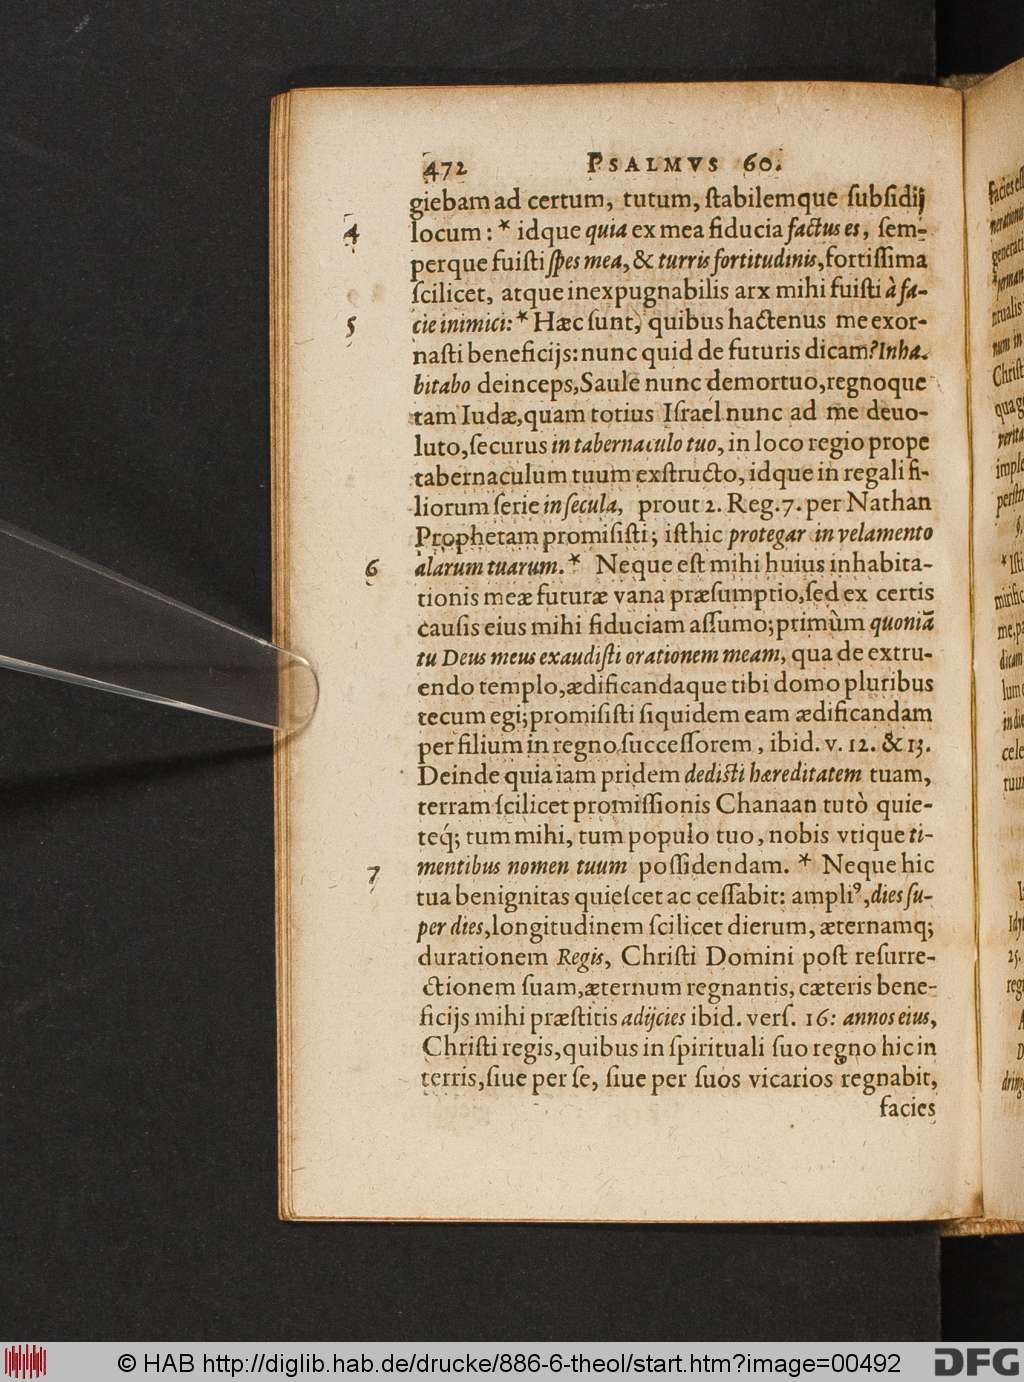 472 PSALMVS 60.
giebam ad certum, tutum, ſtabilemque ſubſidij
4 locum: * idque quia ex mea fiducia factus es, ſem-
perque fuiſti ſpes mea, & turris fortitudinis, fortiſſima
ſcilicet, atque inexpugnabilis arx mihi fuiſti à fa-
5 cie inimici: * Hæc ſunt, quibus hactenus me exor-
naſti beneficijs: nunc quid de futuris dicam? Inha-
bitabo deinceps, Saule nunc demortuo, regnoque
tam Iudæ, quam totius Iſraël nunc ad me deuo-
luto, ſecurus in tabernaculo tuo, in loco regio prope
tabernaculum tuum exſtructo, idque in regali fi-
liorum ſerie in ſecula, prout 2. Reg. 7. per Nathan
Prophetam promiſiſti; iſthic protegar in velamento
6 alarum tuarum. * Neque eſt mihi huius inhabita-
tionis meæ futuræ vana præſumptio, ſed ex certis
cauſis eius mihi fiduciam aſſumo; primùm quoniã
tu Deus meus exaudiſti orationem meam, qua de extru-
endo templo, ædificandaque tibi domo pluribus
tecum egi; promiſiſti ſiquidem eam ædificandam
per filium in regno ſucceſſorem, ibid. v. 12. & 13.
Deinde quia iam pridem dediſti hæreditatem tuam,
terram ſcilicet promiſſionis Chanaan tutò quie-
teq́; tum mihi, tum populo tuo, nobis vtique ti-
7 mentibus nomen tuum poſſidendam. * Neque hic
tua benignitas quieſcet ac ceſſabit: ampliꝰ, dies ſu-
per dies, longitudinem ſcilicet dierum, æternamq;
durationem Regis, Chriſti Domini poſt reſurre-
ctionem ſuam, æternum regnantis, cæteris bene-
ficijs mihi præſtitis adijcies ibid. verſ. 16: annos eius,
Chriſti regis, quibus in ſpirituali ſuo regno hic in
terris, ſiue per ſe, ſiue per ſuos vicarios regnabit,
facies
© HAB http://diglib.hab.de/drucke/886-6-theol/start.htm?image=00492 DFG